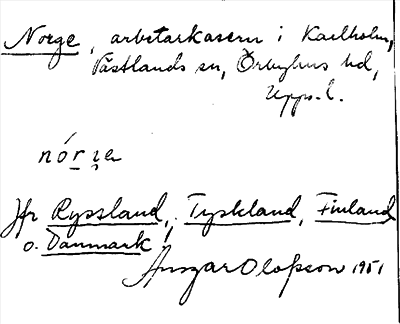 Norge, arbetarkasern i Karlholm,
Västlands sn, Örbyhus hd,
Upps. l.
Jfr Ryssland, Tyskland, Finland
o. Danmark
Ansgar Olofsson 1951